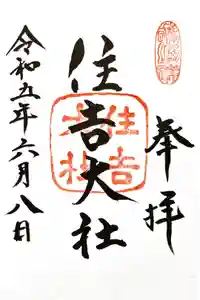 奉拝
住吉大社
令和五年六月八日
住吉大社